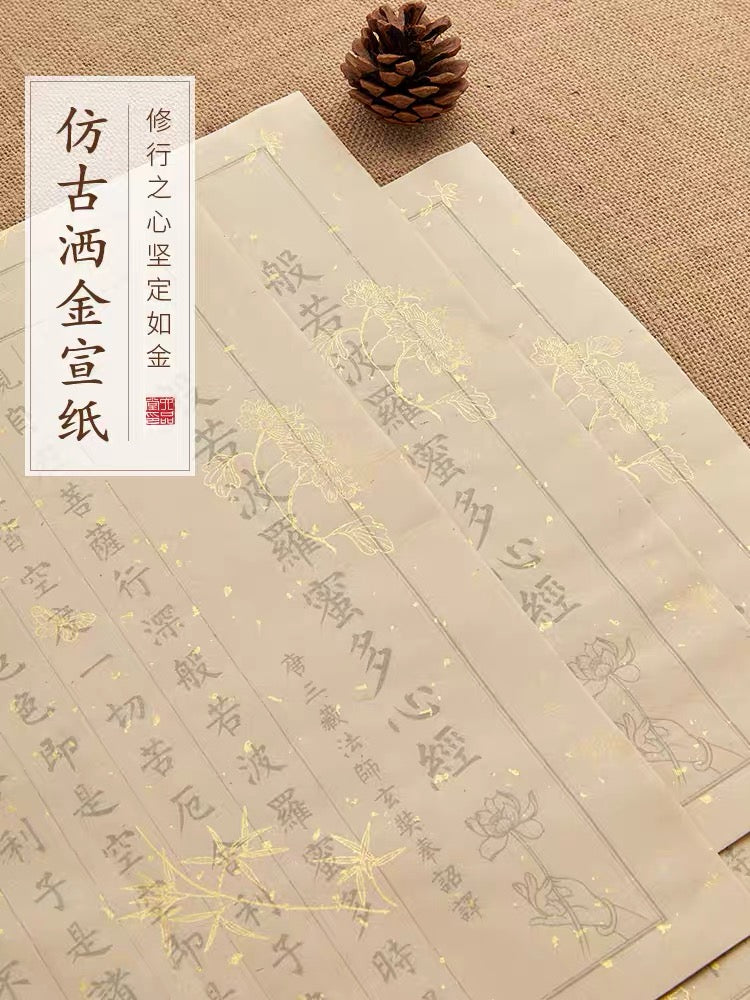 仿古洒金宣纸
修行之心坚定如金
般若波羅蜜多心經
般若波羅蜜多心經
唐三藏法師玄奘奉詔譯
菩薩行深般若波羅蜜多時
皆空度一切苦厄舍利子
色即是空空即是
利子是諸